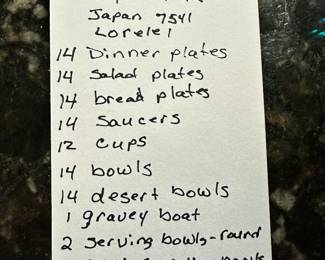 Japan 7541
Lorelei
14 Dinner plates
14 Salad plates
14 bread plates
14 Saucers
12 cups
14 bowls
14 desert bowls
1 gravey boat
2 serving bowls-round